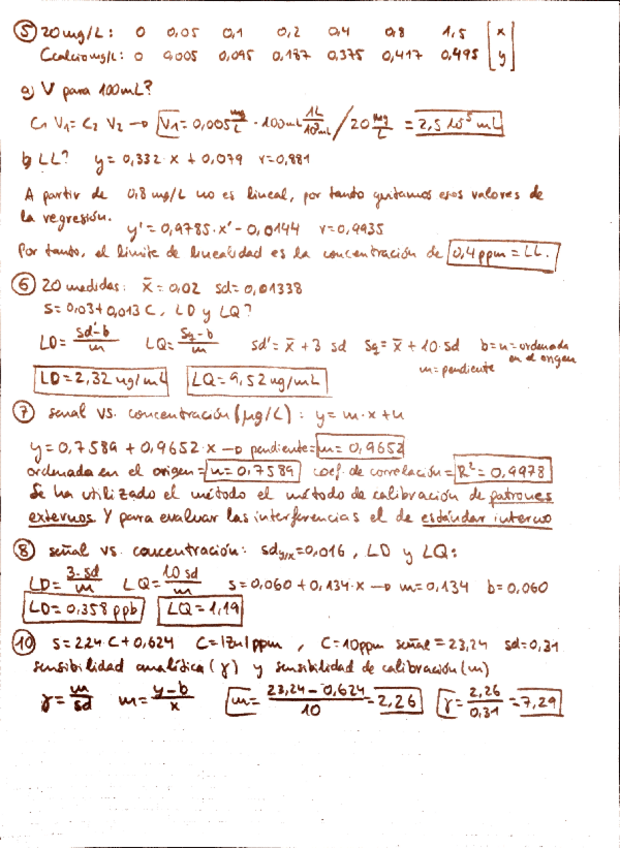 5 20 mg/L: 0 0,05 0,1 0,2 0,4 0,8 1,5 [x
Ccalcio mg/L: 0 0,005 0,095 0,187 0,375 0,417 0,495 y]
a) V para 100mL?
C1 V1 = C2 V2 → V1 = 0,005 mg/L · 100mL 1L/10³mL / 20 mg/L = 2,5 10⁻⁵ mL
b) LL? y = 0,332·x + 0,079 r=0,881
A partir de 0,8 mg/L no es lineal, por tanto quitamos esos valores de
la regresión.
y' = 0,9785·x' - 0,0144 r=0,9935
Por tanto, el límite de linealidad es la concentración de 0,4 ppm = LL.
6 20 medidas: x̄ = 0,02 sd = 0,01338
S = 0,03 + 0,013 C, LD y LQ?
LD = sd'-b/m LQ = Sq-b/m sd' = x̄ + 3 sd Sq = x̄ + 10·sd b=n=ordenada
en el origen
m=pendiente
LD = 2,32 ng/mL LQ = 9,52 ng/mL
7 señal vs. concentración (µg/L): y = m·x + n
y = 0,7589 + 0,9652·x → pendiente = m = 0,9652
ordenada en el origen = n = 0,7589 coef. de correlación = R² = 0,9978
Se ha utilizado el método el método de calibración de patrones
externos. Y para evaluar las interferencias el de estándar interno
8 señal vs. concentración: sdy/x = 0,016, LD y LQ:
LD = 3·sd/m LQ = 10 sd/m S = 0,060 + 0,134·x → m = 0,134 b = 0,060
LD = 0,358 ppb LQ = 1,19
10 S = 2,24·C + 0,624 C = |Zn| ppm, C = 10ppm señal = 23,24 sd = 0,31
sensibilidad analítica (γ) y sensibilidad de calibración (m)
γ = m/sd m = y-b/x m = 23,24 - 0,624/10 = 2,26 γ = 2,26/0,31 = 7,29